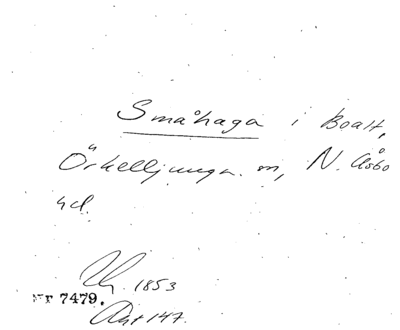 Småhaga i Boalt,
Örkelljunga m, N. Åsbo
hd.
1853
Nr 7479.
Akt 147.